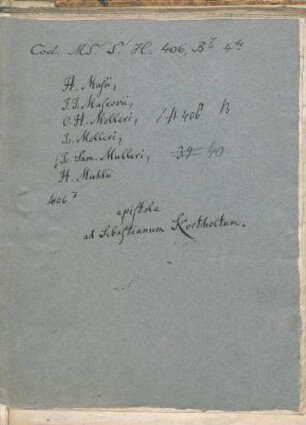 Cod. MS S. H. 406, B 4to
H. Masii,
J. J. Mascovii,
O. H. Molleri, 406 B.
D. Molleri,
D. Sam. Mulleri, 39 40
H. Muhlii
406
epistolae
ad Sebastianum Kortholtum.